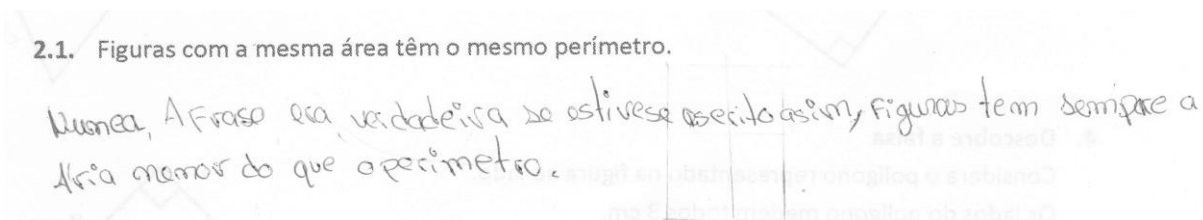 2.1. Figuras com a mesma área têm o mesmo perímetro.
Nunca, A Frase era verdadeira se estivese escrito asim, Figuras tem sempre a
Ária menor do que o perimetro.